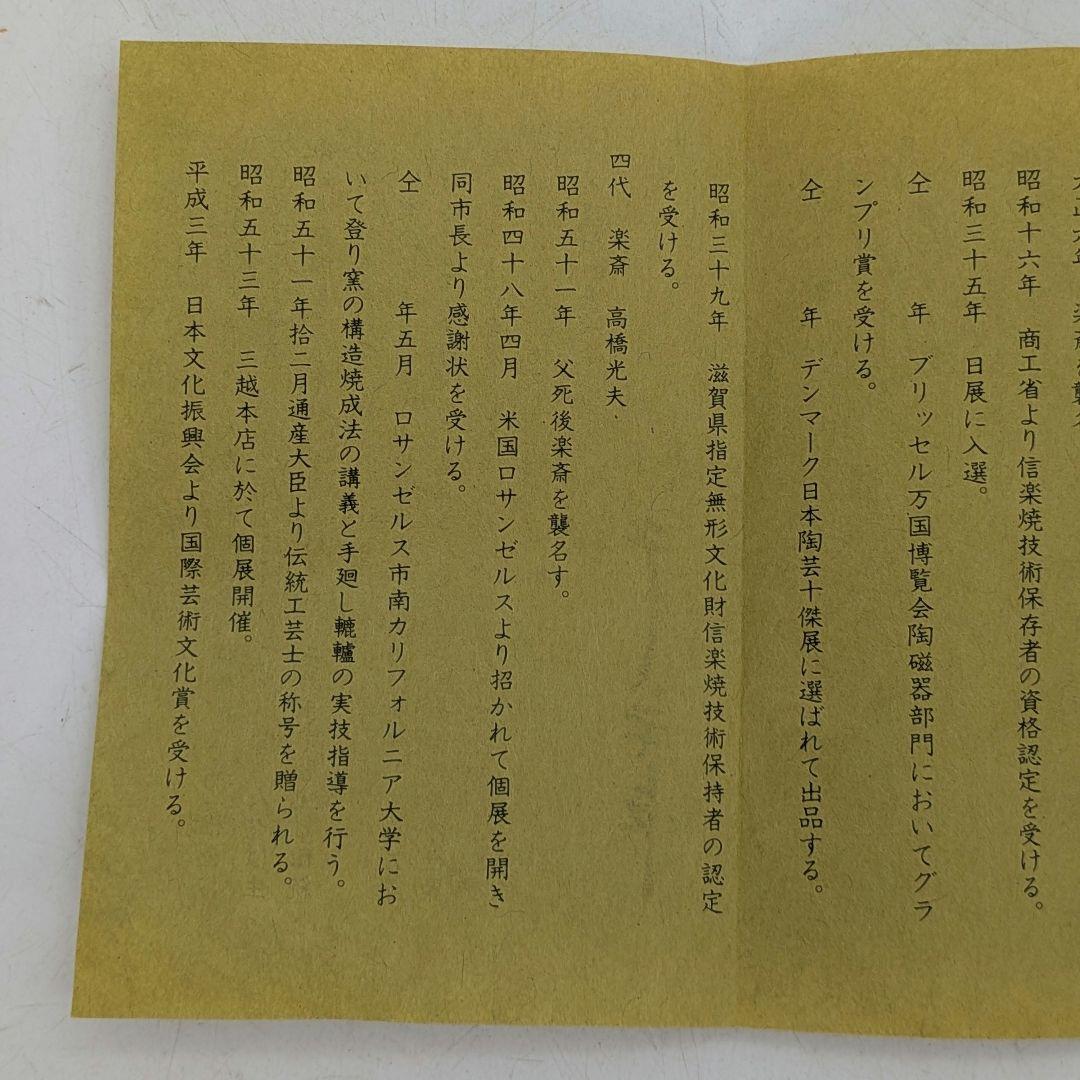 昭和十六年 商工省より信楽焼技術保存者の資格認定を受ける。
昭和三十五年 日展に入選。
仝 年 ブリッセル万国博覧会陶磁器部門においてグラ
ンプリ賞を受ける。
仝 年 デンマーク日本陶芸十傑展に選ばれて出品する。
昭和三十九年 滋賀県指定無形文化財信楽焼技術保持者の認定
を受ける。
四代 楽斎 高橋光夫
昭和五十一年 父死後楽斎を襲名す。
昭和四十八年四月 米国ロサンゼルスより招かれて個展を開き
同市長より感謝状を受ける。
仝 年五月 ロサンゼルス市南カリフォルニア大学にお
いて登り窯の構造焼成法の講義と手廻し轆轤の実技指導を行う。
昭和五十一年拾二月通産大臣より伝統工芸士の称号を贈られる。
昭和五十三年 三越本店に於て個展開催。
平成三年 日本文化振興会より国際芸術文化賞を受ける。